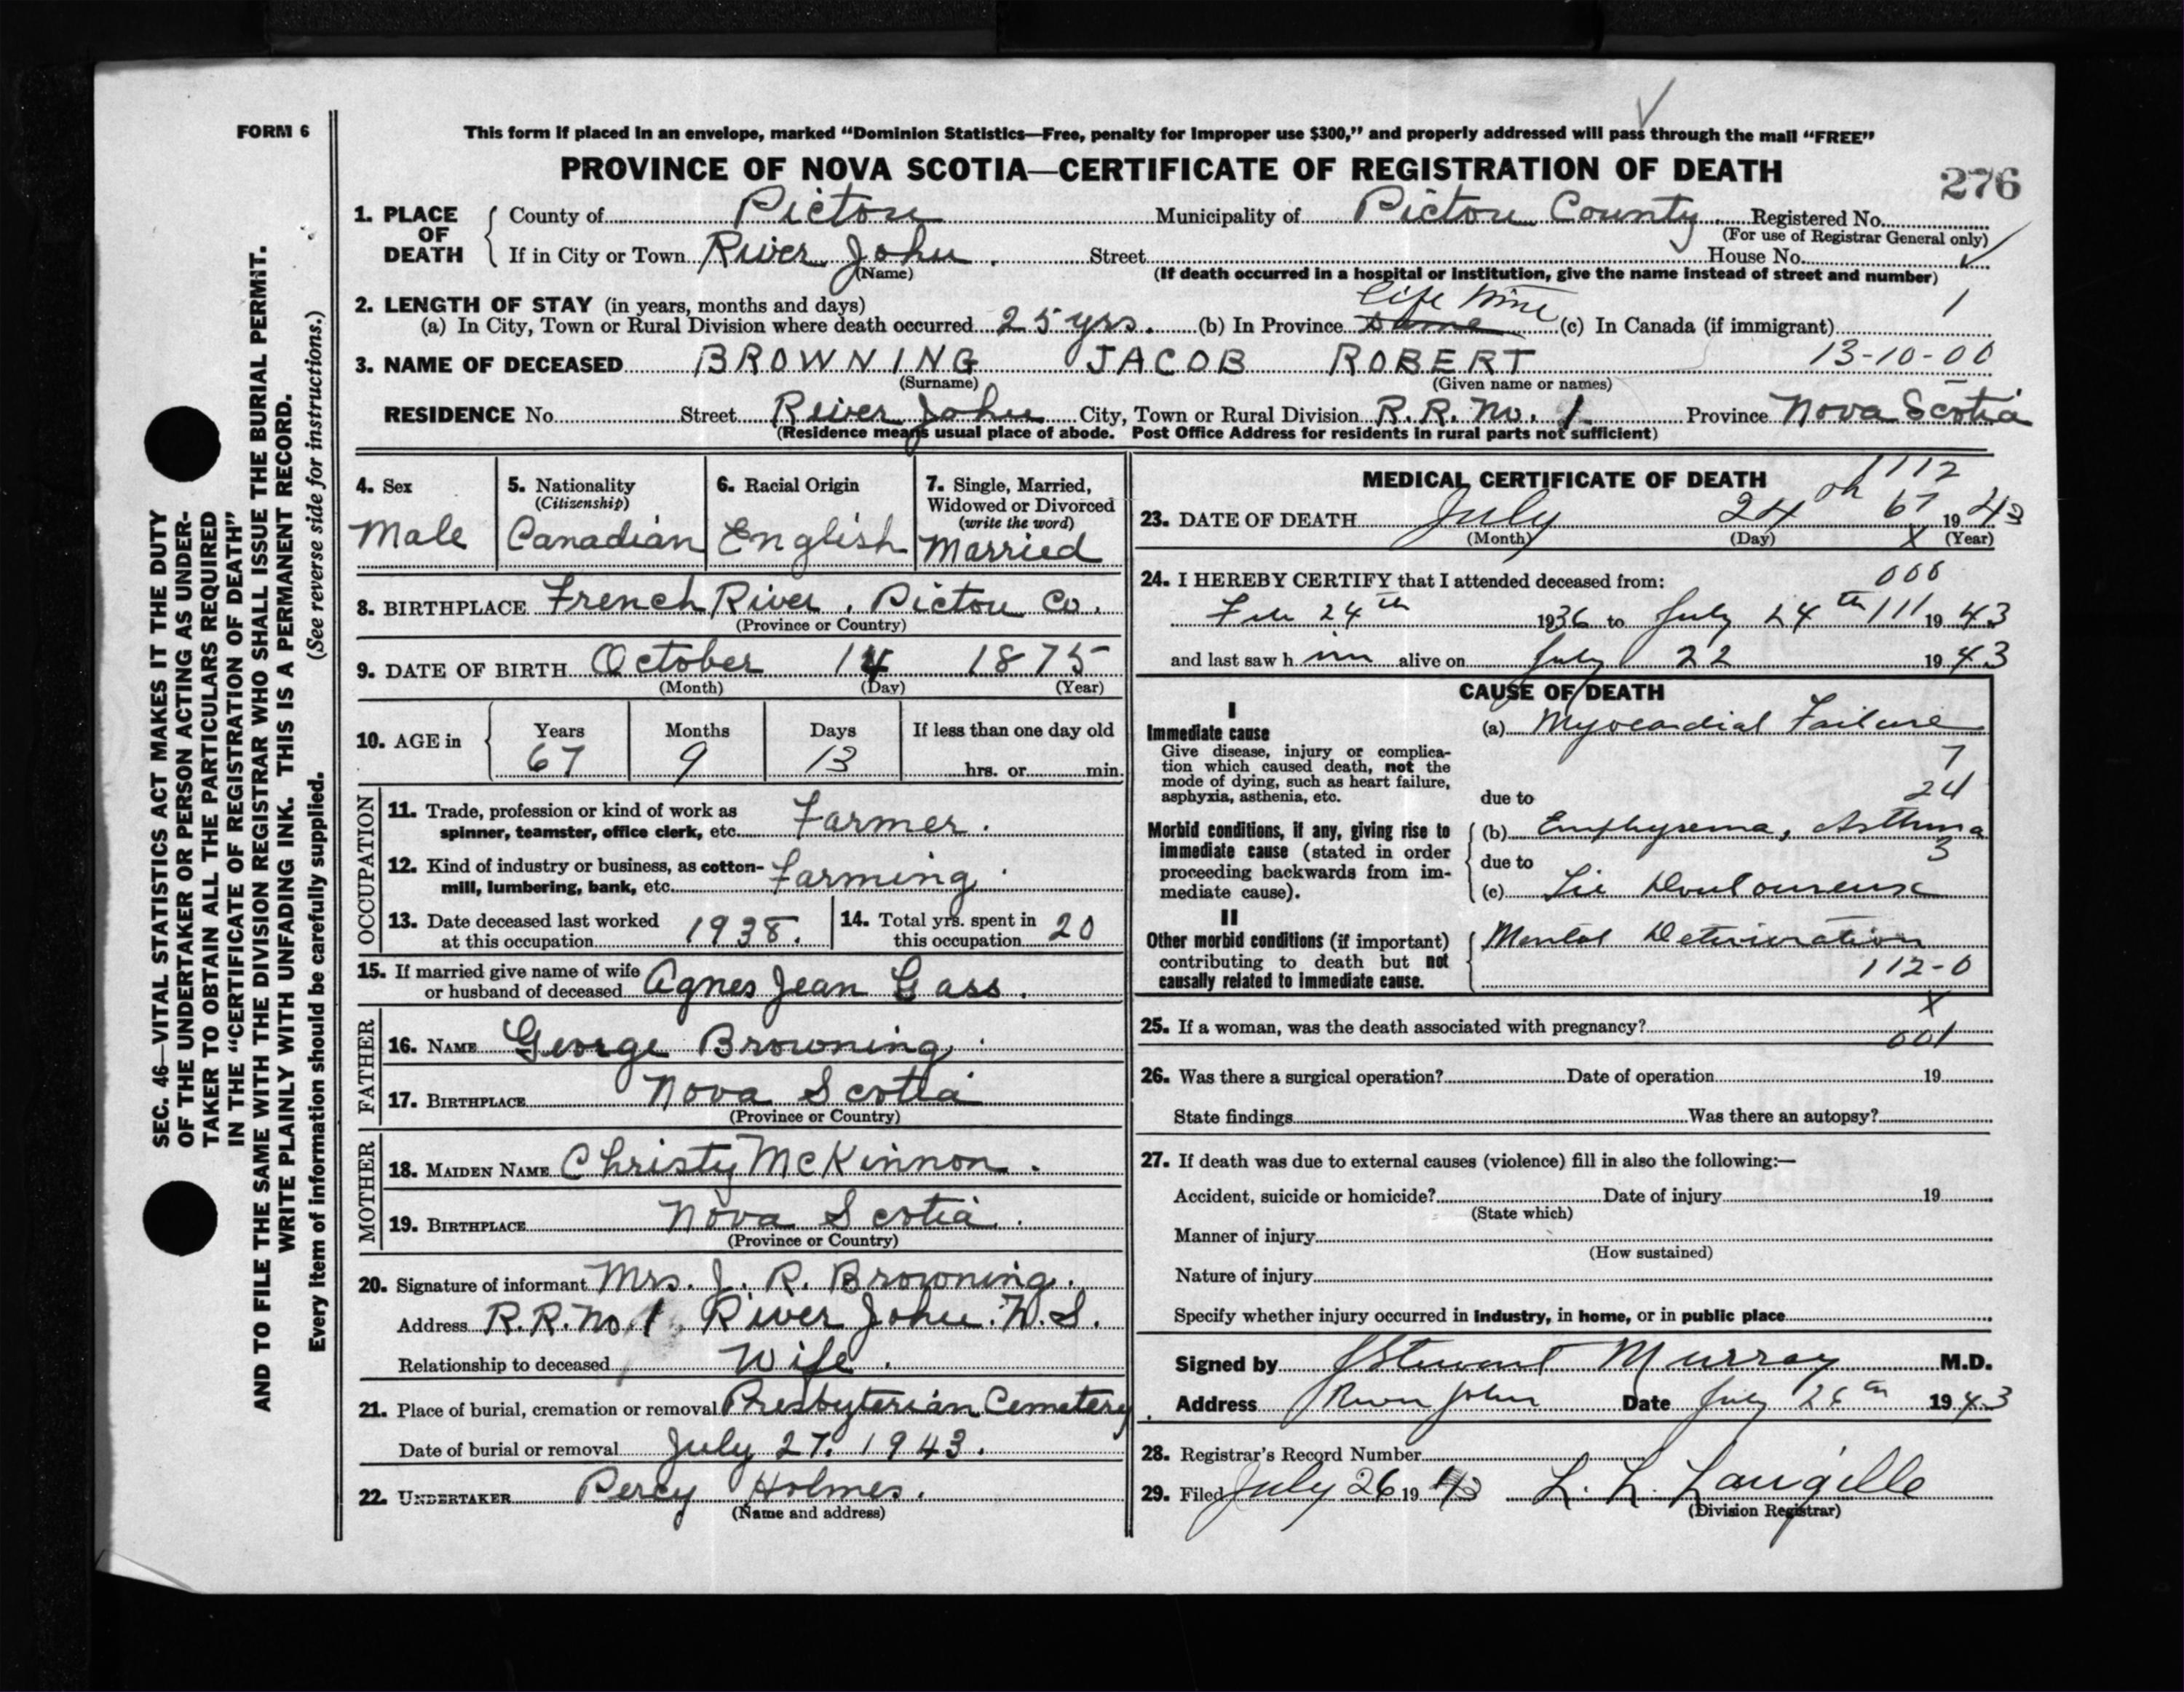 FORM 6
This form if placed in an envelope, marked "Dominion Statistics—Free, penalty for improper use $300," and properly addressed will pass through the mail "FREE"
PROVINCE OF NOVA SCOTIA—CERTIFICATE OF REGISTRATION OF DEATH
276
1. PLACE OF DEATH County of Pictou Municipality of Pictou County. Registered No.
(For use of Registrar General only)
If in City or Town River John. Street House No.
(Name) (If death occurred in a hospital or institution, give the name instead of street and number)
2. LENGTH OF STAY (in years, months and days) life time 1
(a) In City, Town or Rural Division where death occurred 25 yrs. (b) In Province same (c) In Canada (if immigrant)
3. NAME OF DECEASED BROWNING JACOB ROBERT 13-10-00
(Surname) (Given name or names)
RESIDENCE No. Street River John City, Town or Rural Division R.R. No. 1 Province Nova Scotia
(Residence means usual place of abode. Post Office Address for residents in rural parts not sufficient)
4. Sex Male
5. Nationality (Citizenship) Canadian
6. Racial Origin English
7. Single, Married, Widowed or Divorced (write the word) Married
8. BIRTHPLACE French River. Pictou Co.
(Province or Country)
9. DATE OF BIRTH October 14 1875
(Month) (Day) (Year)
10. AGE in Years Months Days If less than one day old
67 9 13 hrs. or min.
OCCUPATION
11. Trade, profession or kind of work as
spinner, teamster, office clerk, etc. Farmer.
12. Kind of industry or business, as cotton-
mill, lumbering, bank, etc. Farming.
13. Date deceased last worked
at this occupation 1938.
14. Total yrs. spent in
this occupation 20
15. If married give name of wife
or husband of deceased Agnes Jean Gass.
FATHER
16. NAME George Browning.
17. BIRTHPLACE Nova Scotia
(Province or Country)
MOTHER
18. MAIDEN NAME Christy McKinnon.
19. BIRTHPLACE Nova Scotia.
(Province or Country)
20. Signature of informant Mrs. J. R. Browning.
Address R.R. No. 1 River John. N.S.
Relationship to deceased Wife.
21. Place of burial, cremation or removal Presbyterian Cemetery
Date of burial or removal July 27. 1943.
22. UNDERTAKER Percy Holmes.
(Name and address)
MEDICAL CERTIFICATE OF DEATH
1112
23. DATE OF DEATH July 24 67 1943
(Month) (Day) X (Year)
24. I HEREBY CERTIFY that I attended deceased from:
Feb 24th 1936 to July 24th 111 1943
and last saw him alive on July 22 1943
CAUSE OF DEATH
I
Immediate cause
Give disease, injury or complica-
tion which caused death, not the
mode of dying, such as heart failure,
asphyxia, asthenia, etc.
(a) Myocardial Failure
7
24
due to
Morbid conditions, if any, giving rise to
immediate cause (stated in order
proceeding backwards from im-
mediate cause).
(b) Emphysema, Asthma
3
due to
(c) Tic Douloureux
II
Other morbid conditions (if important)
contributing to death but not
causally related to immediate cause.
Mental Deterioration
112-0
X
25. If a woman, was the death associated with pregnancy? 001
26. Was there a surgical operation? Date of operation 19
State findings Was there an autopsy?
27. If death was due to external causes (violence) fill in also the following:—
Accident, suicide or homicide? Date of injury 19
(State which)
Manner of injury
(How sustained)
Nature of injury
Specify whether injury occurred in industry, in home, or in public place
Signed by J Stewart Murray M.D.
Address River John Date July 26th 1943
28. Registrar's Record Number
29. Filed July 26 1943 L. L. Langille
(Division Registrar)
SEC. 46—VITAL STATISTICS ACT MAKES IT THE DUTY
OF THE UNDERTAKER OR PERSON ACTING AS UNDER-
TAKER TO OBTAIN ALL THE PARTICULARS REQUIRED
IN THE "CERTIFICATE OF REGISTRATION OF DEATH"
AND TO FILE THE SAME WITH THE DIVISION REGISTRAR WHO SHALL ISSUE THE BURIAL PERMIT.
WRITE PLAINLY WITH UNFADING INK. THIS IS A PERMANENT RECORD.
Every item of information should be carefully supplied. (See reverse side for instructions.)